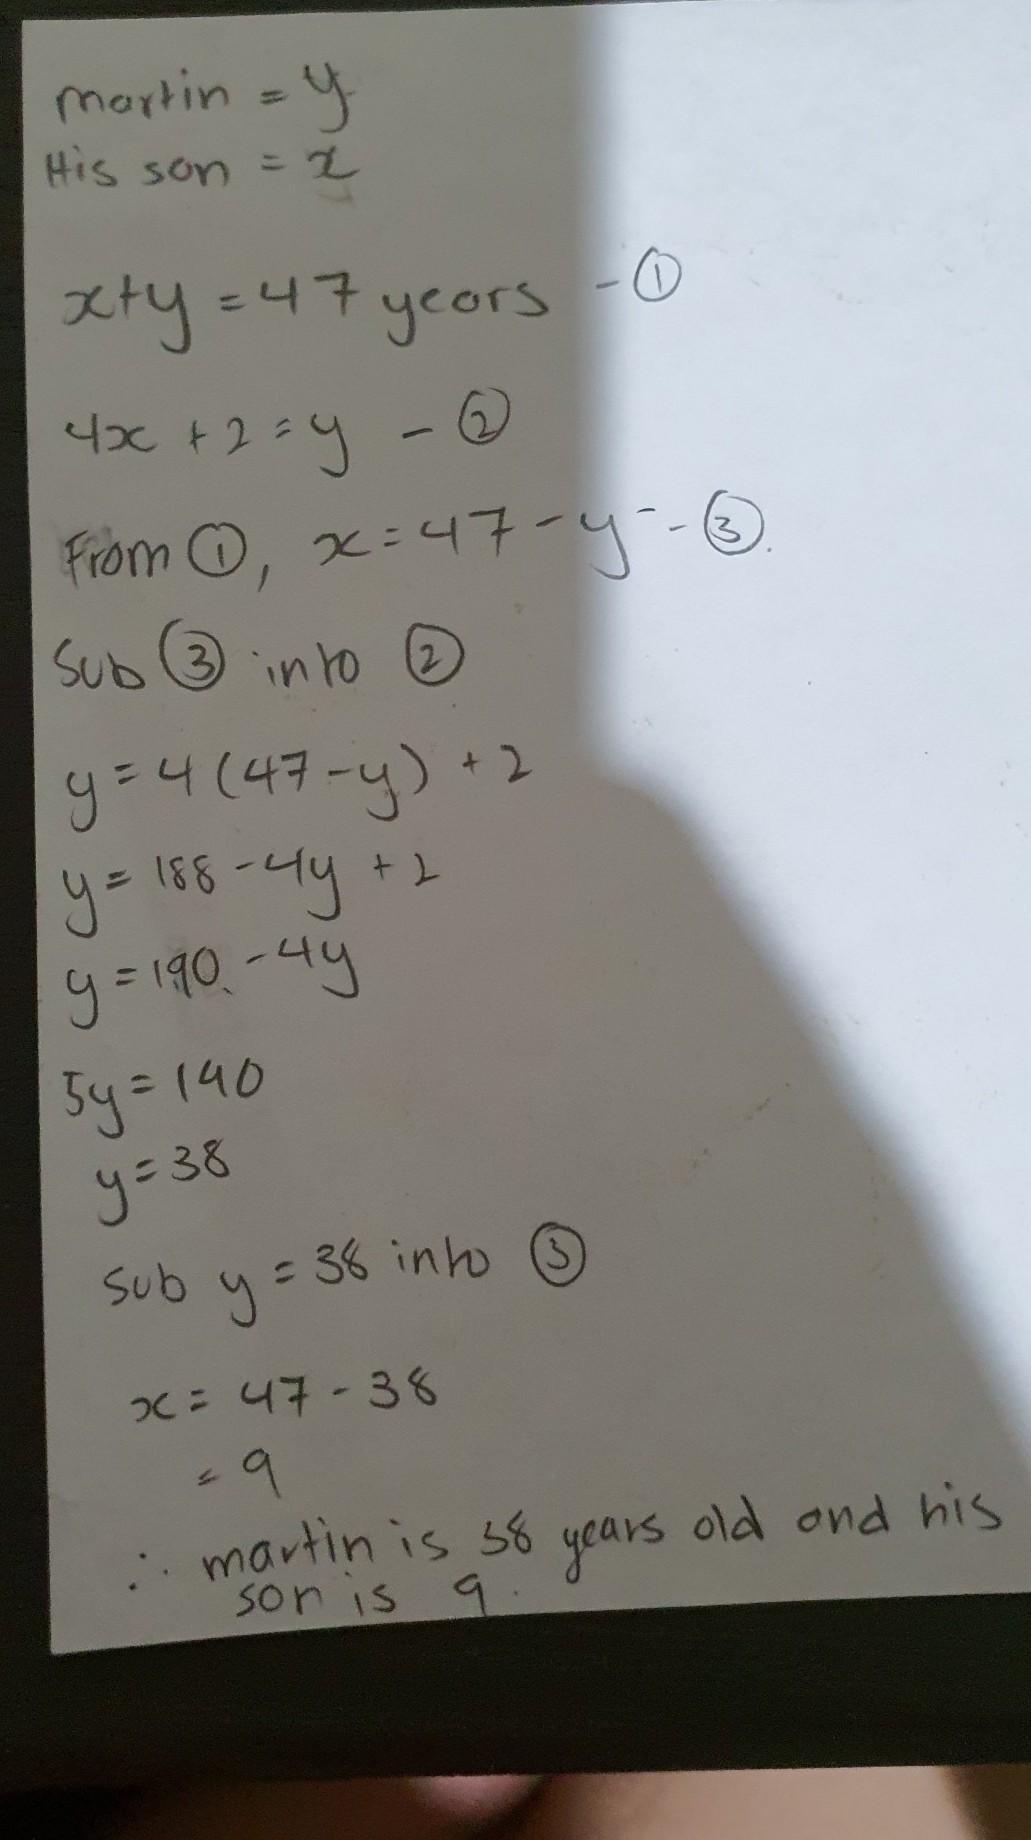 Martin = y
His son = x
x+y = 47 years - ①
4x + 2 = y - ②
From ①, x = 47 - y - - ③.
Sub ③ into ②
y = 4 (47 - y) + 2
y = 188 - 4y + 2
y = 190 - 4y
5y = 190
y = 38
Sub y = 38 into ③
x = 47 - 38
= 9
∴ martin is 38 years old and his
son is 9.